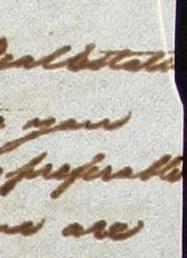 Real Estate
your
preferable
are